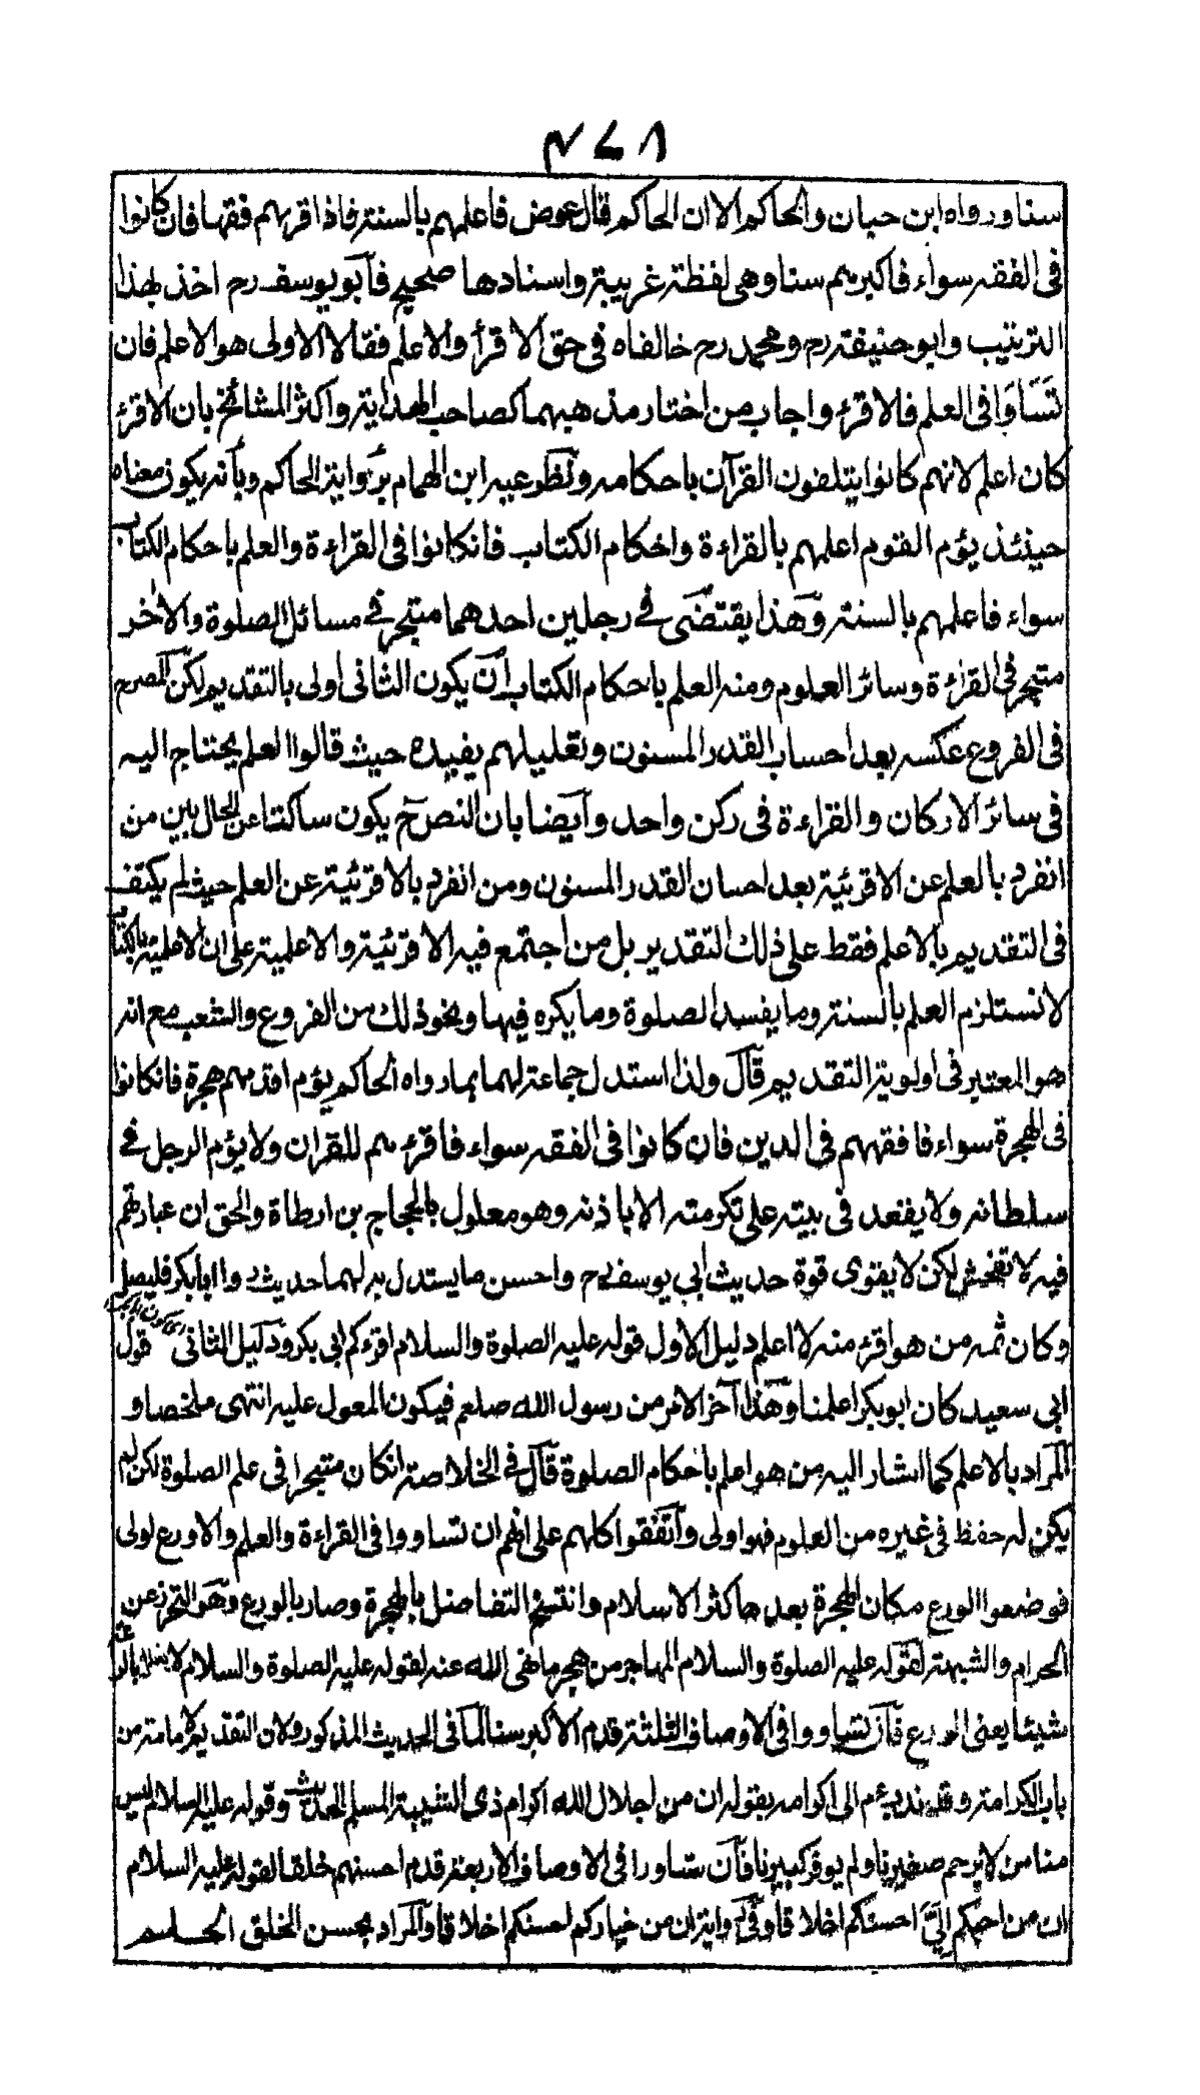 ۴۷۸
سنا ورواه ابن حبان والحاكم الا ان الحاكم قال عوض فاعلمهم بالسنة فاذا اقرهم فقها فان كانوا
فى الفقه سواء فاكبرهم سنا وهى لفظة غريبة واسنادها صحيح فابو يوسف رح اخذ بهذا
الترتيب وابو حنيفة رح ومحمد رح خالفاه فى حق الاقرأ والاعلم فقالا الاولى هو الاعلم فان
تساوا فى العلم فالاقرء واجاب من اختار مذهبهما كصاحب الهداية واكثر المشائخ بان الاقرء
كان اعلم لانهم كانوا يتلقون القرآن باحكامه ونظر عيه ابن الهمام برواية الحاكم وبأنه يكون معناه
حينئذ يؤم القوم اعلمهم بالقراءة واحكام الكتاب فانكانوا فى القراءة والعلم باحكام الكتاب
سواء فاعلمهم بالسنة وهذا يقتضى فى رجلين احدهما متبحر فى مسائل الصلوة والاخر
متبحر فى القراءة وسائر العلوم ومنه العلم باحكام الكتاب ان يكون الثانى اولى بالتقديم لكن المصرح
فى الفروع عكسه بعد احساب القدر المسنون وتعليلهم يفيده حيث قالوا العلم يحتاج اليه
فى سائر الاركان والقراءة فى ركن واحد وايضا بان النص ح يكون ساكتا عن الحال بين من
انفرد بالعلم عن الاقرئية بعد احسان القدر المسنون ومن انفرد بالاقرئية عن العلم حيث لم يكتف
فى التقديم بالاعلم فقط على ذلك التقدير بل من اجتمع فيه الاقرئية والاعلمية على ان الاعلمية بالكتاب
لا تستلزم العلم بالسنة وما يفسد الصلوة وما يكره فيها ونحو ذلك من الفروع والشعب مع انه
هو المعتبر فى اولوية التقديم قال ولذا استدل جماعة لهما بما رواه الحاكم يؤم اقدمهم هجرة فانكانوا
فى الهجرة سواء فافقههم فى الدين فان كانوا فى الفقه سواء فاقرءهم للقران ولا يؤم الرجل فى
سلطانه ولا يقعد فى بيته على تكرمته الا باذنه وهو معلول بالحجاج بن ارطاة والحق ان عبارتهم
فيه لا تفحش لكن لا يقوى قوة حديث ابى يوسف رح واحسن ما يستدل به لهما حديث مروا ابا بكر فليصل
وكان ثمه من هو اقرء منه لا اعلم دليل الاول قوله عليه الصلوة والسلام اقرءكم ابى بكر ودليل الثانى قول
ابى سعيد كان ابو بكر اعلمنا وهذا آخر الامر من رسول الله صلعم فيكون المعول عليه انتهى ملخصا و
المراد بالاعلم كما اشار اليه من هو اعلم باحكام الصلوة قال فى الخلاصة انكان متبحرا فى علم الصلوة لكن لم
يكن له حفظ فى غيره من العلوم فهو اولى واتفقوا كلهم على انهم ان تساووا فى القراءة والعلم والاورع لولى
فوضعوا الورع مكان الهجرة بعد ما كثر الاسلام وانتسخ التفاضل بالهجرة وصار بالورع وهو التحرز عن
الحرام والشبهة لقوله عليه الصلوة والسلام المهاجر من هجر ما نهى الله عنه لقوله عليه الصلوة والسلام لا
شيئا يعنى الورع فان تساووا فى الاوصاف الثلثة قدم الاكبر سنا لما فى الحديث المذكور ولان التقديم للامامة من
باب الكرامة وقد ندب ءم الى اكرامه بقوله ان من اجلال الله اكرام ذى الشيبة المسلم الحديث وقوله عليه السلام ليس
منا من لا يرحم صغيرنا ولم يوقر كبيرنا فان تساورا فى الاوصاف الاربعة قدم احسنهم خلقا لقوله عليه السلام
ان من احبكم الىّ احسنكم اخلاقا وفى رواية ان من خياركم احسنكم اخلاقا والمراد بحسن الخلق الحلم